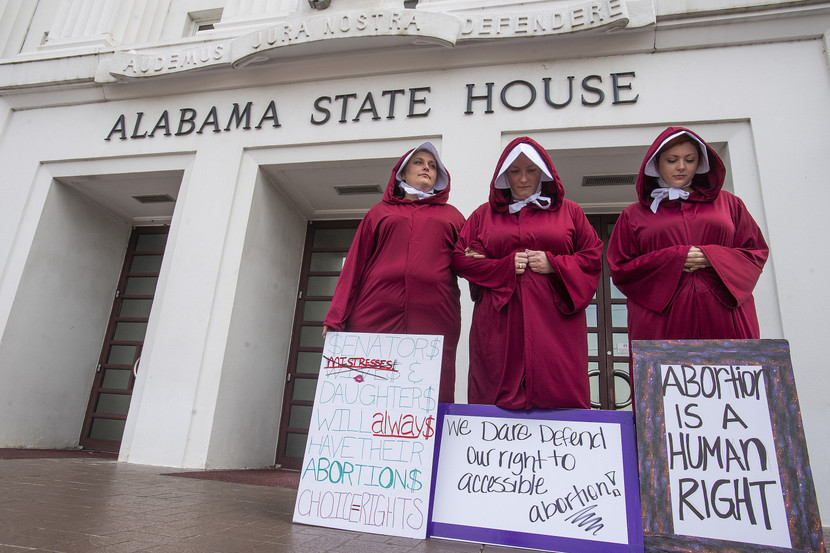 AUDEMUS JURA NOSTRA DEFENDERE
ALABAMA STATE HOUSE
$ENATOR$
MISTRESSES &
DAUGHTER$
WILL alway$
HAVE THEIR
ABORTION$
CHOICE=RIGHTS
We Dare Defend
our right to
accessible
abortion!
ABORTION
IS A
HUMAN
RIGHT